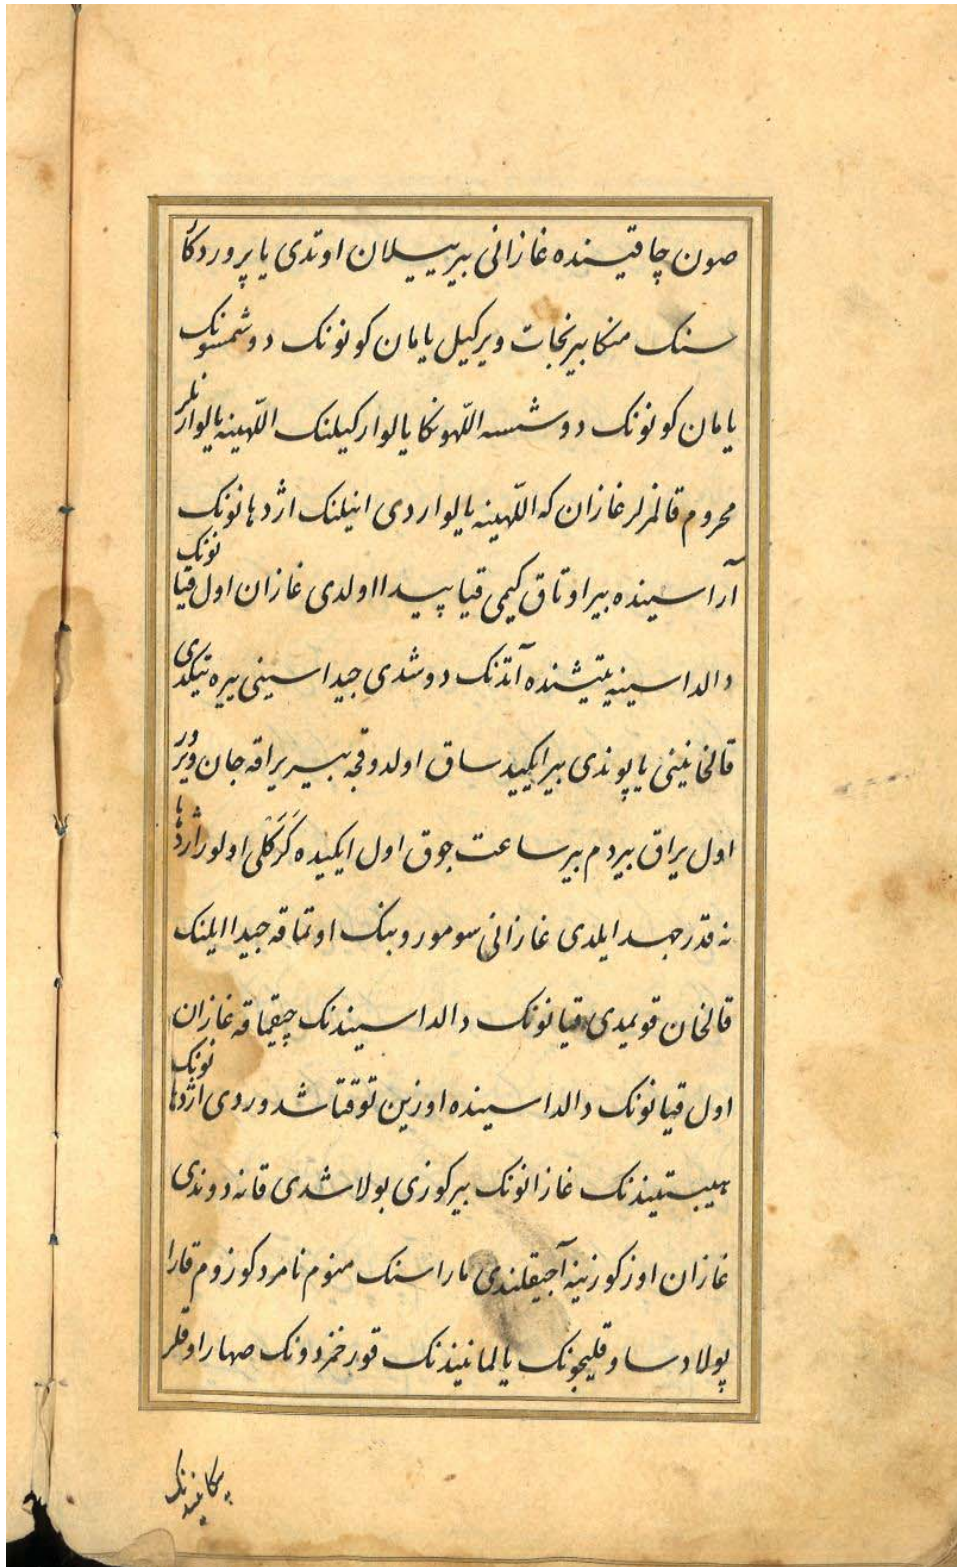 صون چاقیسنده غازانی بیر ییلان اوتدی یا پروردکار
سنک منکا بیر نجات ویرکیل یامان کونونک دوشمسونک
یامان کونونک دوشسه اللهونکا یالوار کیلنک اللهینه یالوارنلر
محروم قالمزلر غازان که اللهینه یالواردی انیلنک اژدهانونک
آراسینده بیر اوتاق کیمی قیا پیدا اولدی غازان اول قیانونک
دالداسینه یتیشنده آتدنک دوشدی جیداسینی ییره تیکدی
قالخانینی یاپوندی بیر ایکید ساق اولدوقجه بیر یراقه جان ویرور
اول یراق بیر دم بیر ساعت جوق اول ایکیده کَرَکْلی اولور اژدها
نه قدر جهد ایلدی غازانی سوموروبنک اوتماقه جیدا ایلنک
قالخان قویمدی قیانونک دالداسیندنک چیقماقه غازان
اول قیانونک دالداسینده اوزین توقتاشدوردی اژدهانونک
هیبتیندنک غازانونک بیر کوزی بولاشدی قانه دوندی
غازان اوز کوزینه آجیقلندی باراسنک منوم نامرد کوزوم قارا
پولاد ساو قلیجونک یالمانیندنک قورخمزدونک صهار اوقلر
یکانیندنک